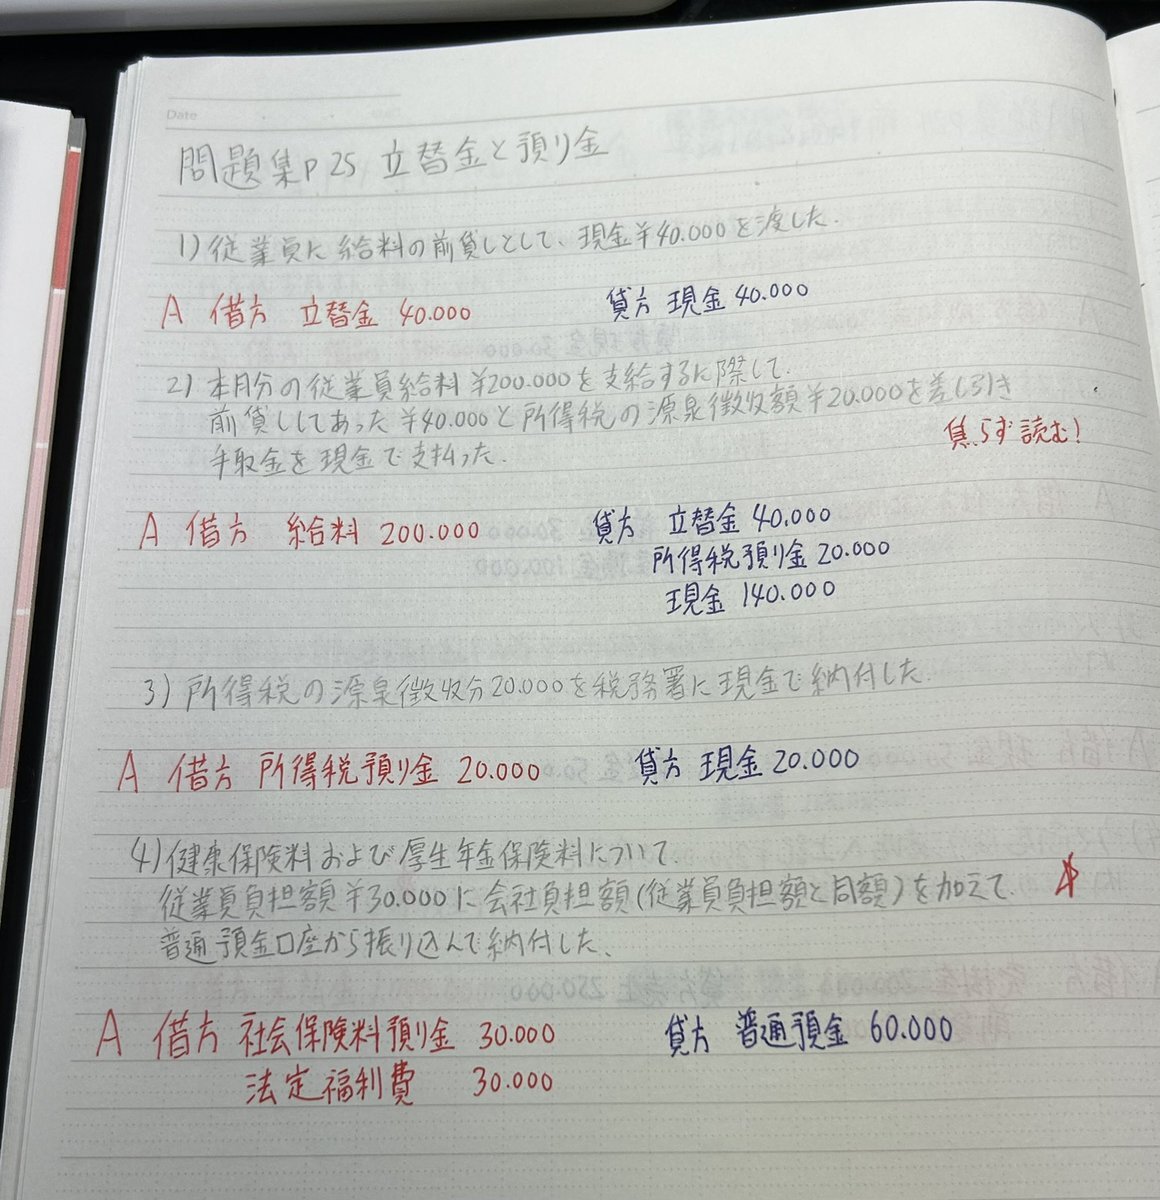 Date
問題集P25 立替金と預り金
1) 従業員に給料の前貸しとして、現金¥40.000を渡した.
A 借方 立替金 40.000 貸方 現金 40.000
2) 本月分の従業員給料¥200.000を支給するに際して.
前貸ししてあった¥40.000と所得税の源泉徴収額¥20.000を差し引き
焦らず読む!
手取金を現金で支払った.
A 借方 給料 200.000 貸方 立替金 40.000
所得税預り金 20.000
現金 140.000
3) 所得税の源泉徴収分20.000を税務署に現金で納付した.
A 借方 所得税預り金 20.000 貸方 現金 20.000
4) 健康保険料および厚生年金保険料について.
従業員負担額¥30.000に会社負担額(従業員負担額と同額)を加えて.
普通預金口座から振り込んで納付した、
A 借方 社会保険料預り金 30.000 貸方 普通預金 60.000
法定福利費 30.000